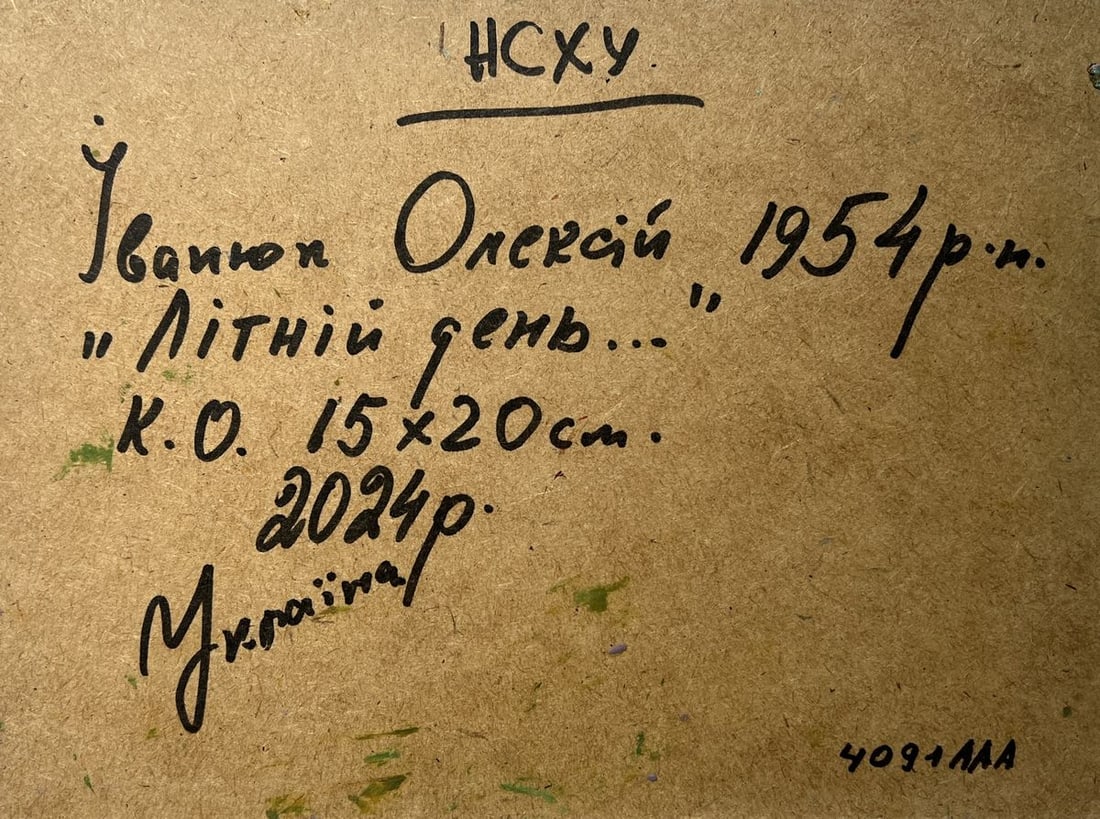 НСХУ
Іванюк Олексій 1954 р.н.
„Літній день..."
К.О. 15х20см.
2024р.
Україна
4091ЛЛА